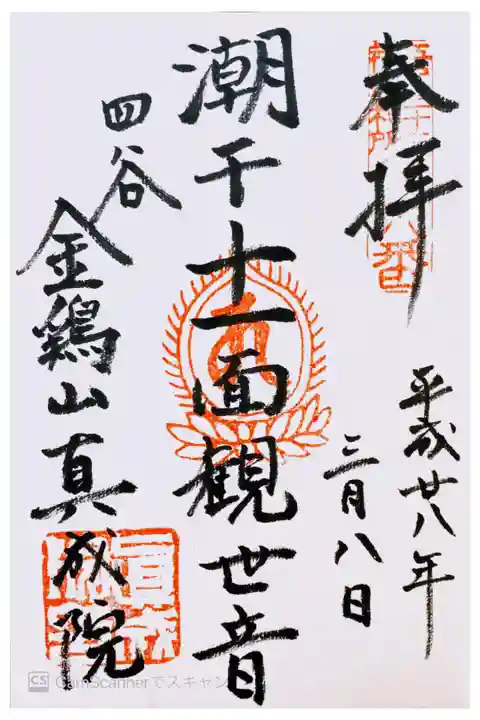 奉拝
平成廿八年
三月八日
潮干十一面観世音
四谷
金鶏山真成院
CS CamScannerでスキャン